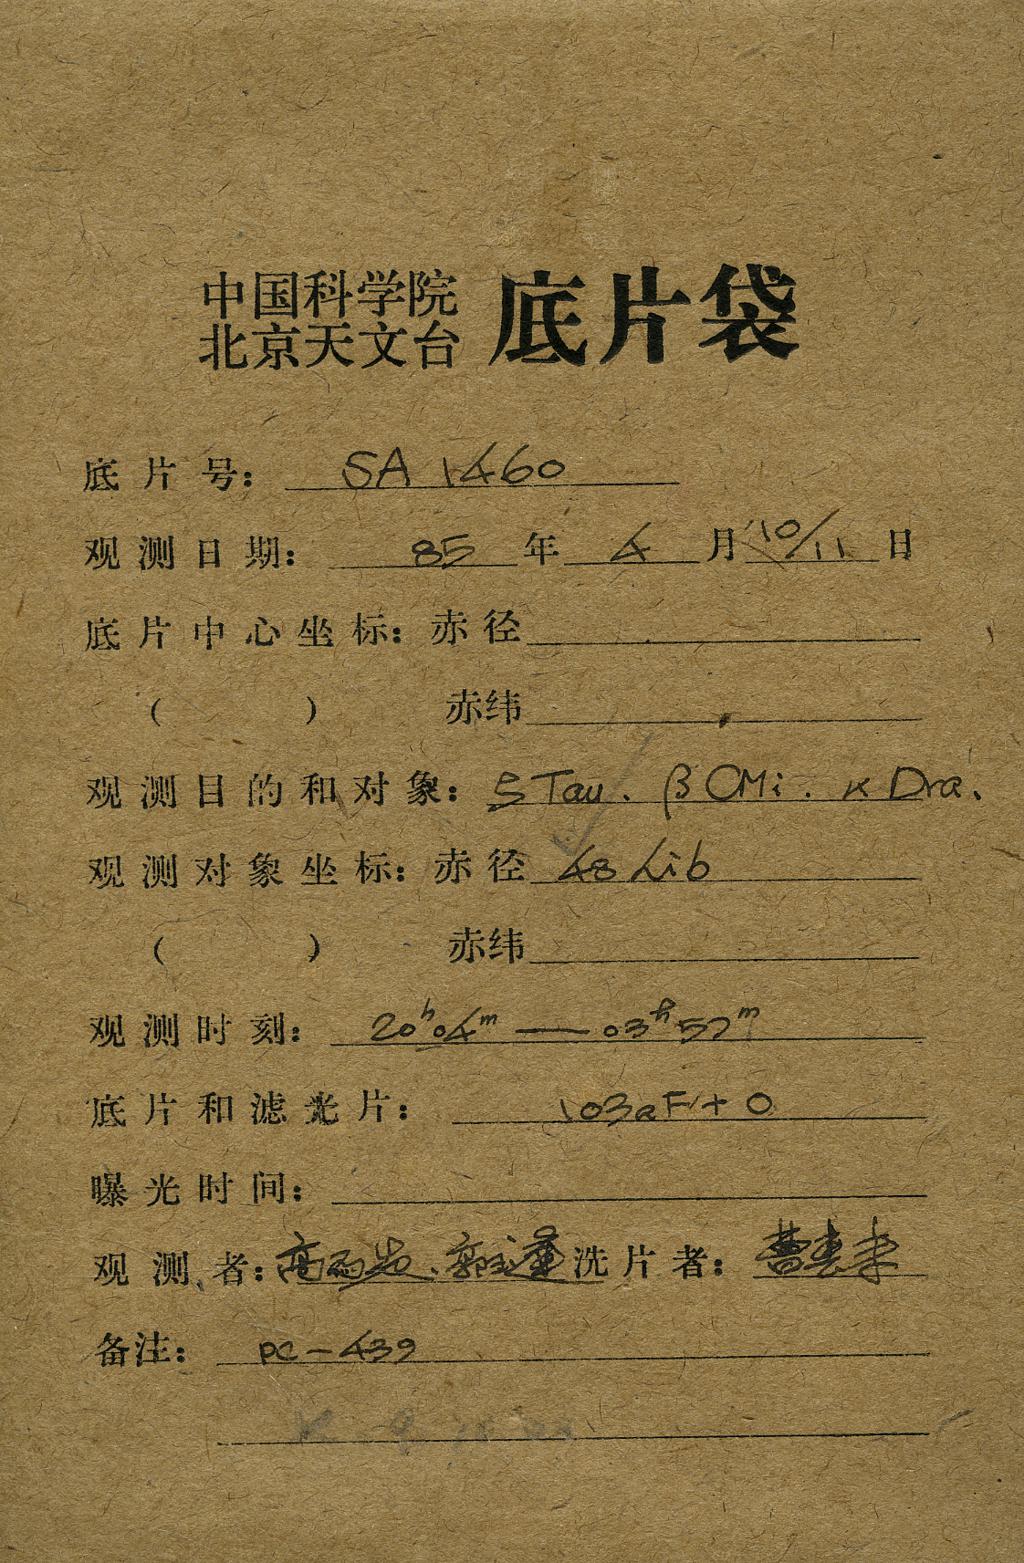 中国科学院
北京天文台 底片袋
底片号: SA 1460
观测日期: 85 年 4 月 10/11 日
底片中心坐标: 赤径
( ) 赤纬
观测目的和对象: ζ Tau. β CMi. κ Dra.
观测对象坐标: 赤径 48 Lib
( ) 赤纬
观测时刻: 20h04m — 03h57m
底片和滤光片: 103aF + O
曝光时间:
观测者: 洗片者:
备注: PC-439